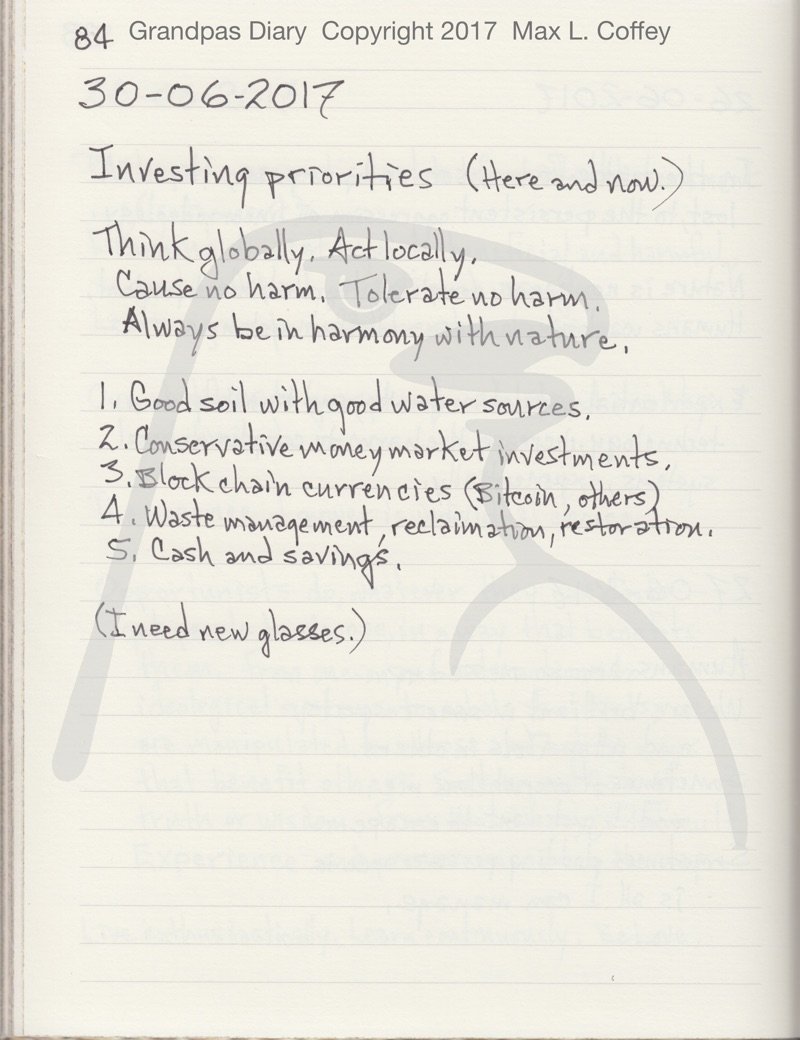 84 Grandpas Diary Copyright 2017 Max L. Coffey
30-06-2017
Investing priorities (Here and now.)
Think globally. Act locally.
Cause no harm. Tolerate no harm.
Always be in harmony with nature.
1. Good soil with good water sources.
2. Conservative money market investments.
3. Block chain currencies (Bitcoin, others)
4. Waste management, reclaimation, restoration.
5. Cash and savings.
(I need new glasses.)